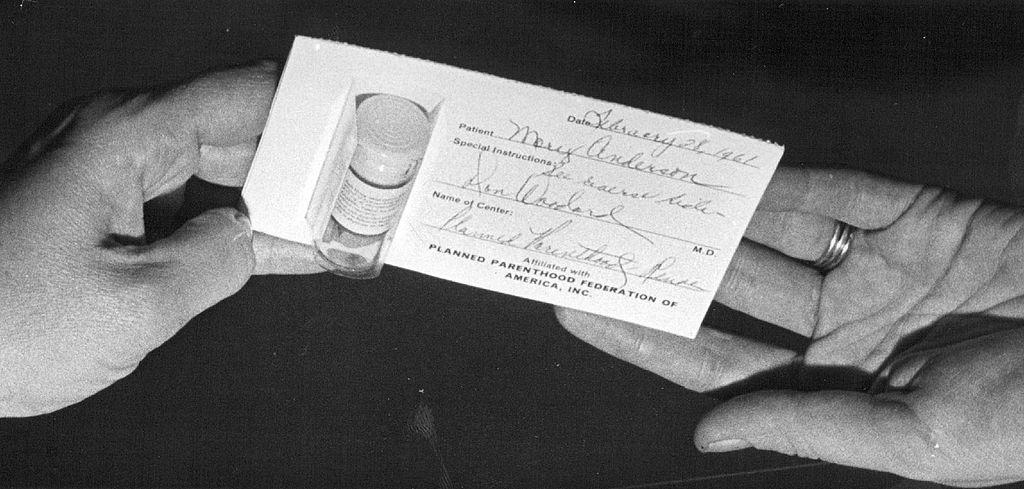 Date February 28, 1961
Patient Mary Anderson
Special Instructions: See reverse side-
Don
M.D.
Name of Center:
Planned Parenthood
Affiliated with
PLANNED PARENTHOOD FEDERATION OF
AMERICA, INC.